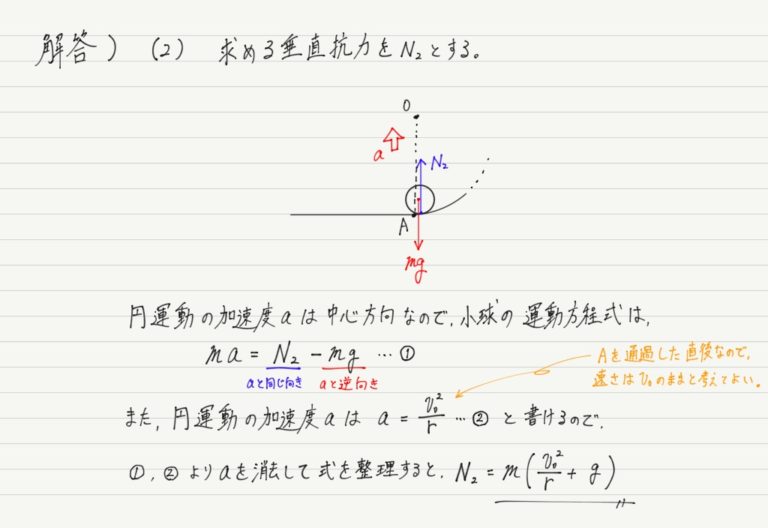 解答) (2) 求める垂直抗力をN₂とする。
O
a
N₂
A
mg
円運動の加速度aは中心方向なので、小球の運動方程式は、
ma = N₂ - mg … ①
aと同じ向き aと逆向き
Aを通過した直後なので、
速さはv₀のままと考えてよい。
また、円運動の加速度aは a = v₀²/r … ② と書けるので、
①, ②よりaを消去して式を整理すると、N₂ = m(v₀²/r + g)